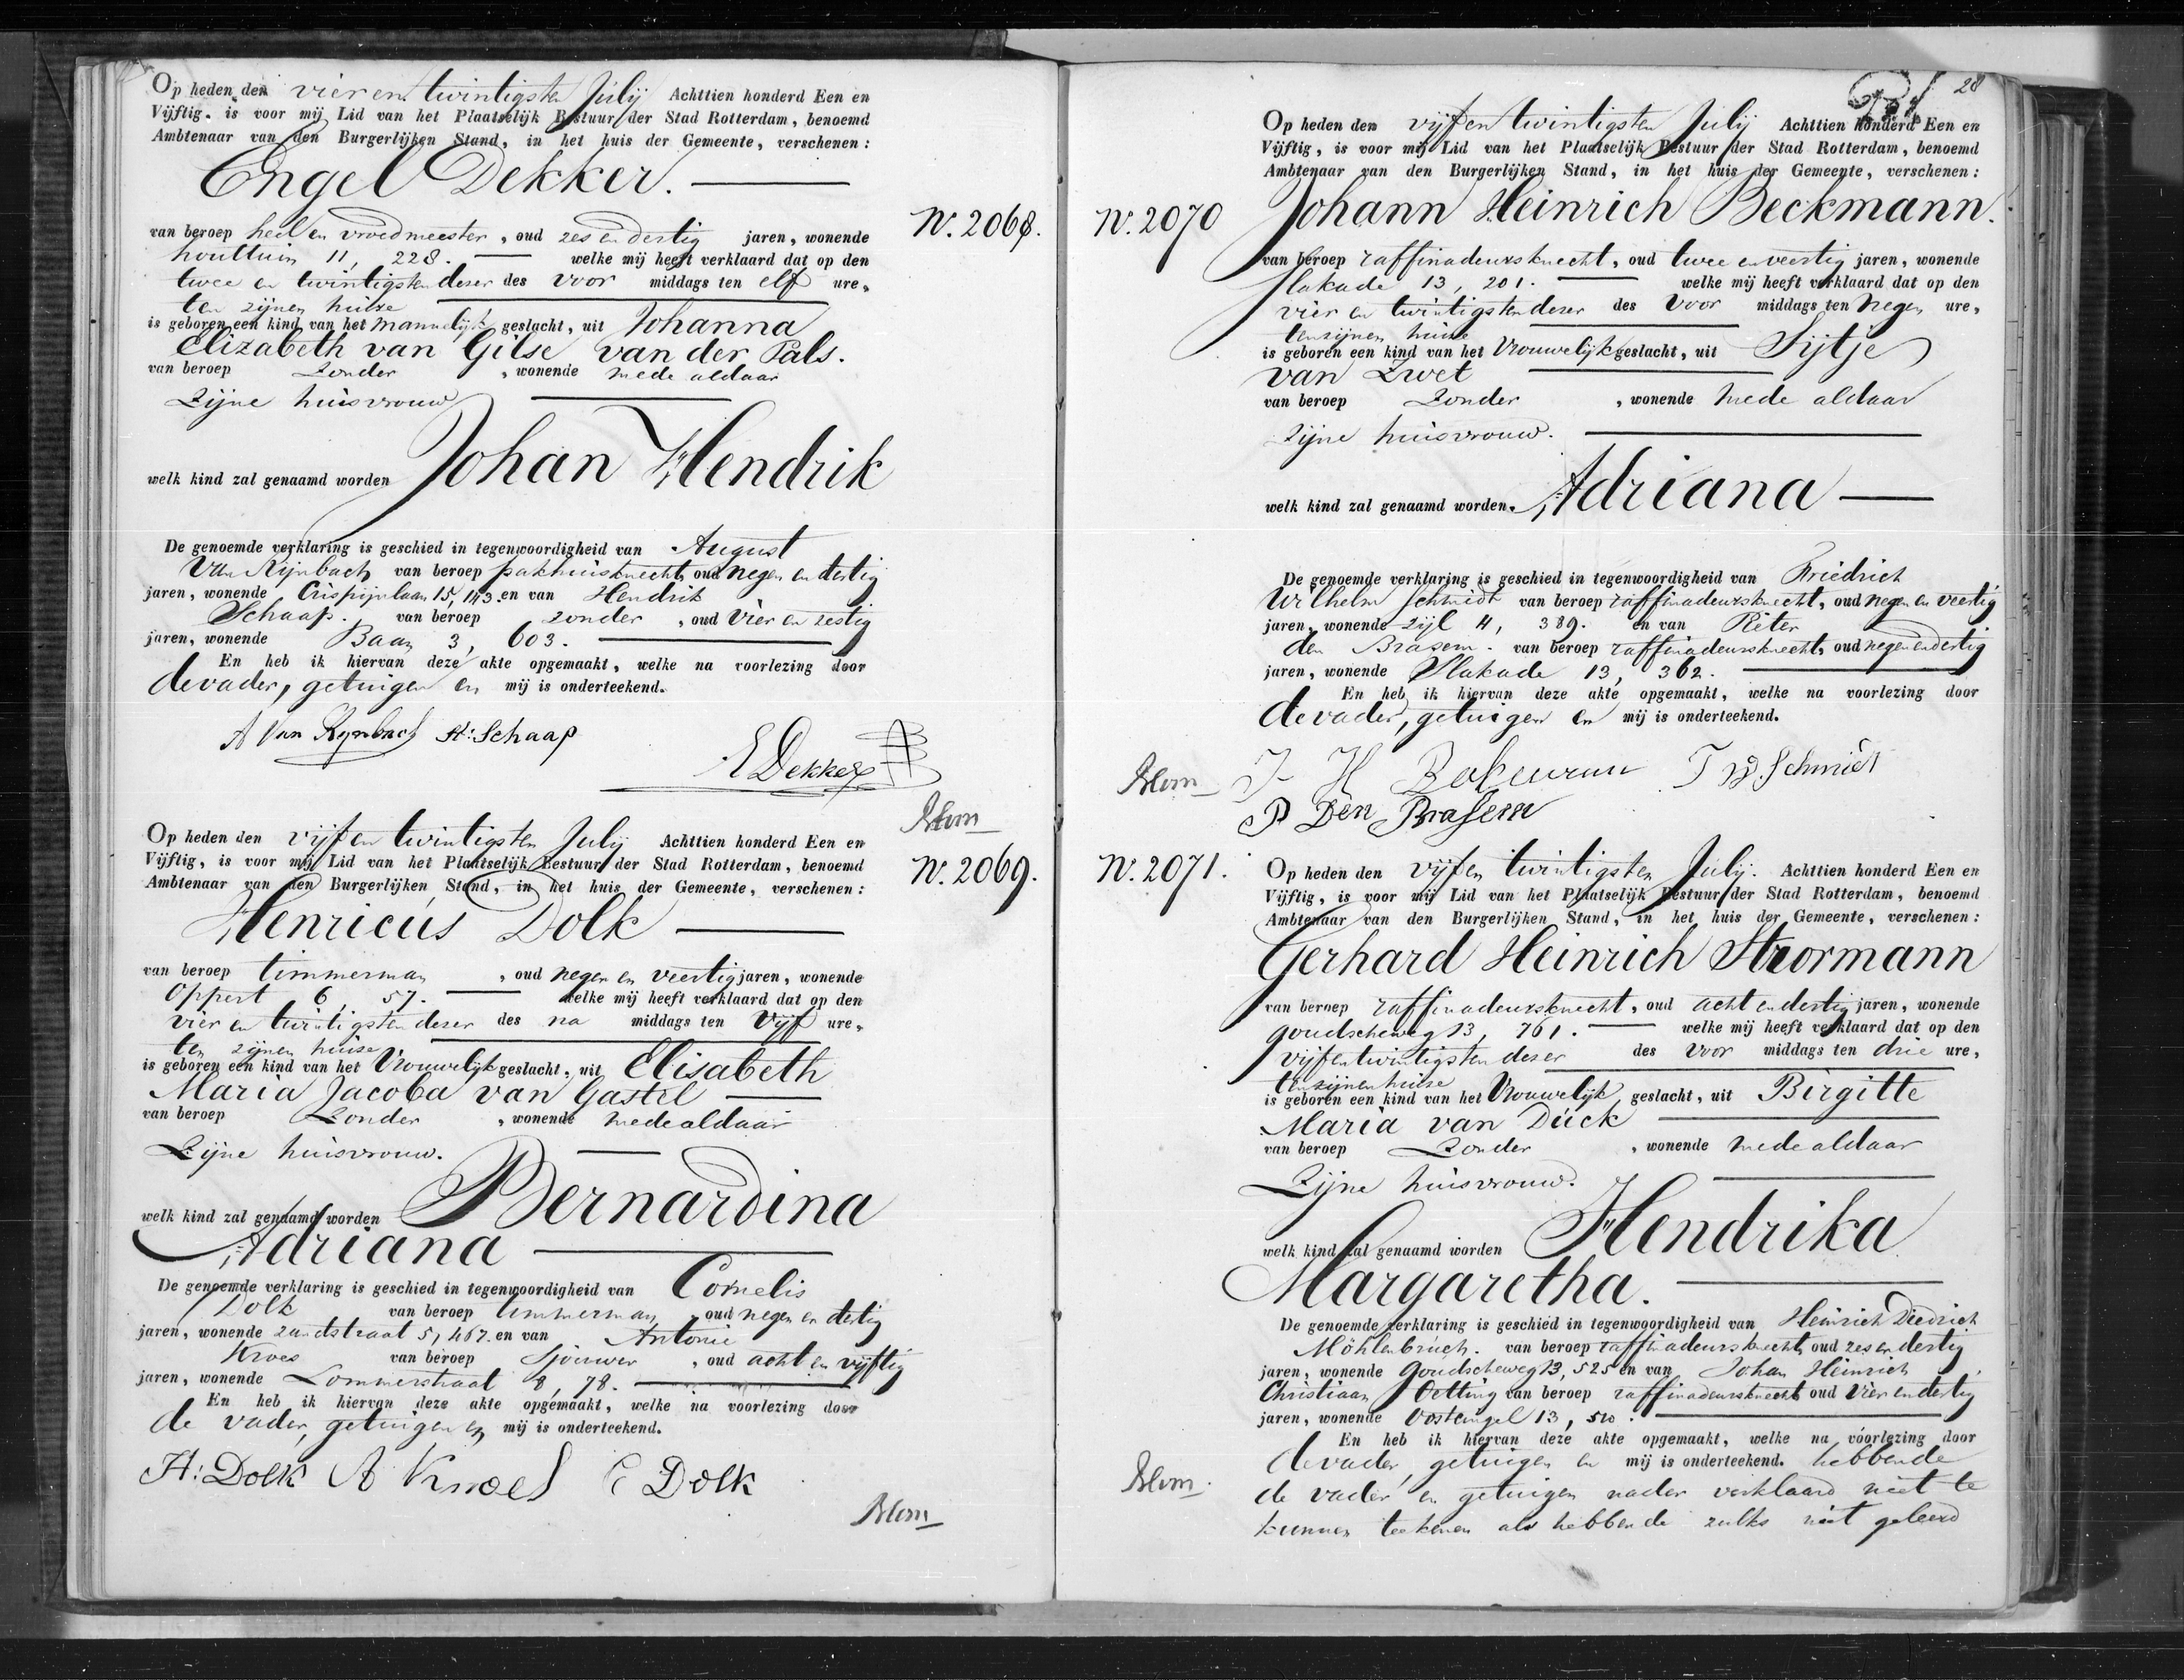 Op heden den vier en twintigsten Julij Achttien honderd Een en
Vijftig, is voor mij Lid van het Plaatselijk Bestuur der Stad Rotterdam, benoemd
Ambtenaar van den Burgerlijken Stand, in het huis der Gemeente, verschenen:
Engel Dekker.
N. 2068.
van beroep heel en vroedmeester, oud zes en dertig jaren, wonende
houttuin 11, 228. welke mij heeft verklaard dat op den
twee en twintigsten deser des voor middags ten elf ure,
ten zijnen huise
is geboren een kind van het mannelijk geslacht, uit Johanna
Elizabeth van Gilse van der Pals.
van beroep Zonder, wonende mede aldaar
Zijne huisvrouw
welk kind zal genaamd worden Johan Hendrik
De genoemde verklaring is geschied in tegenwoordigheid van August
Van Rijnbach van beroep pakhuisknecht, oud negen en dertig
jaren, wonende Crispijnlaan 15, 143. en van Hendrik
Schaap. van beroep zonder, oud vier en zestig
jaren, wonende Baan 3, 603.
En heb ik hiervan deze akte opgemaakt, welke na voorlezing door
de vader, getuigen en mij is onderteekend.
A Van Rynbach H: Schaap
E Dekker
Blom
Op heden den vijf en twintigsten Julij Achttien honderd Een en
Vijftig, is voor mij Lid van het Plaatselijk Bestuur der Stad Rotterdam, benoemd
Ambtenaar van den Burgerlijken Stand, in het huis der Gemeente, verschenen:
N. 2069.
Henricus Dolk
van beroep timmerman, oud negen en veertig jaren, wonende
Oppert 6, 57. welke mij heeft verklaard dat op den
vier en twintigsten deser des na middags ten vijf ure,
ten zijnen huise
is geboren een kind van het Vrouwelijk geslacht, uit Elisabeth
Maria Jacoba van Gastel
van beroep Zonder, wonende mede aldaar
Zijne huisvrouw.
welk kind zal genaamd worden Bernardina
Adriana
De genoemde verklaring is geschied in tegenwoordigheid van Cornelis
Dolk van beroep timmerman, oud negen en dertig
jaren, wonende zandstraat 5, 467. en van Antonie
Kroes van beroep Sjouwer, oud acht en vijftig
jaren, wonende Lommerstraat 8, 78.
En heb ik hiervan deze akte opgemaakt, welke na voorlezing door
de vader, getuigen en mij is onderteekend.
H: Dolk A Kroes C Dolk
Blom
28
Op heden den vijf en twintigsten Julij Achttien honderd Een en
Vijftig, is voor mij Lid van het Plaatselijk Bestuur der Stad Rotterdam, benoemd
Ambtenaar van den Burgerlijken Stand, in het huis der Gemeente, verschenen:
N. 2070 Johann Heinrich Beckmann.
van beroep raffinadeursknecht, oud twee en veertig jaren, wonende
Slakade 13, 201. welke mij heeft verklaard dat op den
vier en twintigsten deser des voor middags ten negen ure,
ten zijnen huise
is geboren een kind van het Vrouwelijk geslacht, uit Sijtje
van Zwet
van beroep Zonder, wonende mede aldaar
Zijne huisvrouw.
welk kind zal genaamd worden. Adriana
De genoemde verklaring is geschied in tegenwoordigheid van Friedrich
Wilhelm Schmidt van beroep raffinadeursknecht, oud negen en veertig
jaren, wonende Zijl 4, 389. en van Pieter
den Brasem. van beroep raffinadeursknecht, oud negen en dertig
jaren, wonende Slakade 13, 362.
En heb ik hiervan deze akte opgemaakt, welke na voorlezing door
de vader, getuigen en mij is onderteekend.
Blom
J H F W. Schmidt
P Den Brasem
N. 2071.
Op heden den vijf en twintigsten Julij. Achttien honderd Een en
Vijftig, is voor mij Lid van het Plaatselijk Bestuur der Stad Rotterdam, benoemd
Ambtenaar van den Burgerlijken Stand, in het huis der Gemeente, verschenen:
Gerhard Heinrich Strormann
van beroep raffinadeursknecht, oud acht en dertig jaren, wonende
goudscheweg 13, 761. welke mij heeft verklaard dat op den
vijf en twintigsten deser des voor middags ten drie ure,
ten zijnen huise
is geboren een kind van het Vrouwelijk geslacht, uit Birgitte
Maria van Dück
van beroep Zonder, wonende mede aldaar
Zijne huisvrouw.
welk kind zal genaamd worden Hendrika
Margaretha.
De genoemde verklaring is geschied in tegenwoordigheid van Heinrich Diedrich
Möhlenbruch. van beroep raffinadeursknecht, oud zes en dertig
jaren, wonende Goudscheweg 13, 525 en van Johan Heinrich
Christiaan Oetting van beroep raffinadeursknecht oud vier en dertig
jaren, wonende Oostsingel 13, 510.
En heb ik hiervan deze akte opgemaakt, welke na voorlezing door
de vader, getuigen en mij is onderteekend. hebbende
Blom.
de vader en getuigen nader verklaard niet te
kunnen teekenen als hebbende zulks niet geleerd